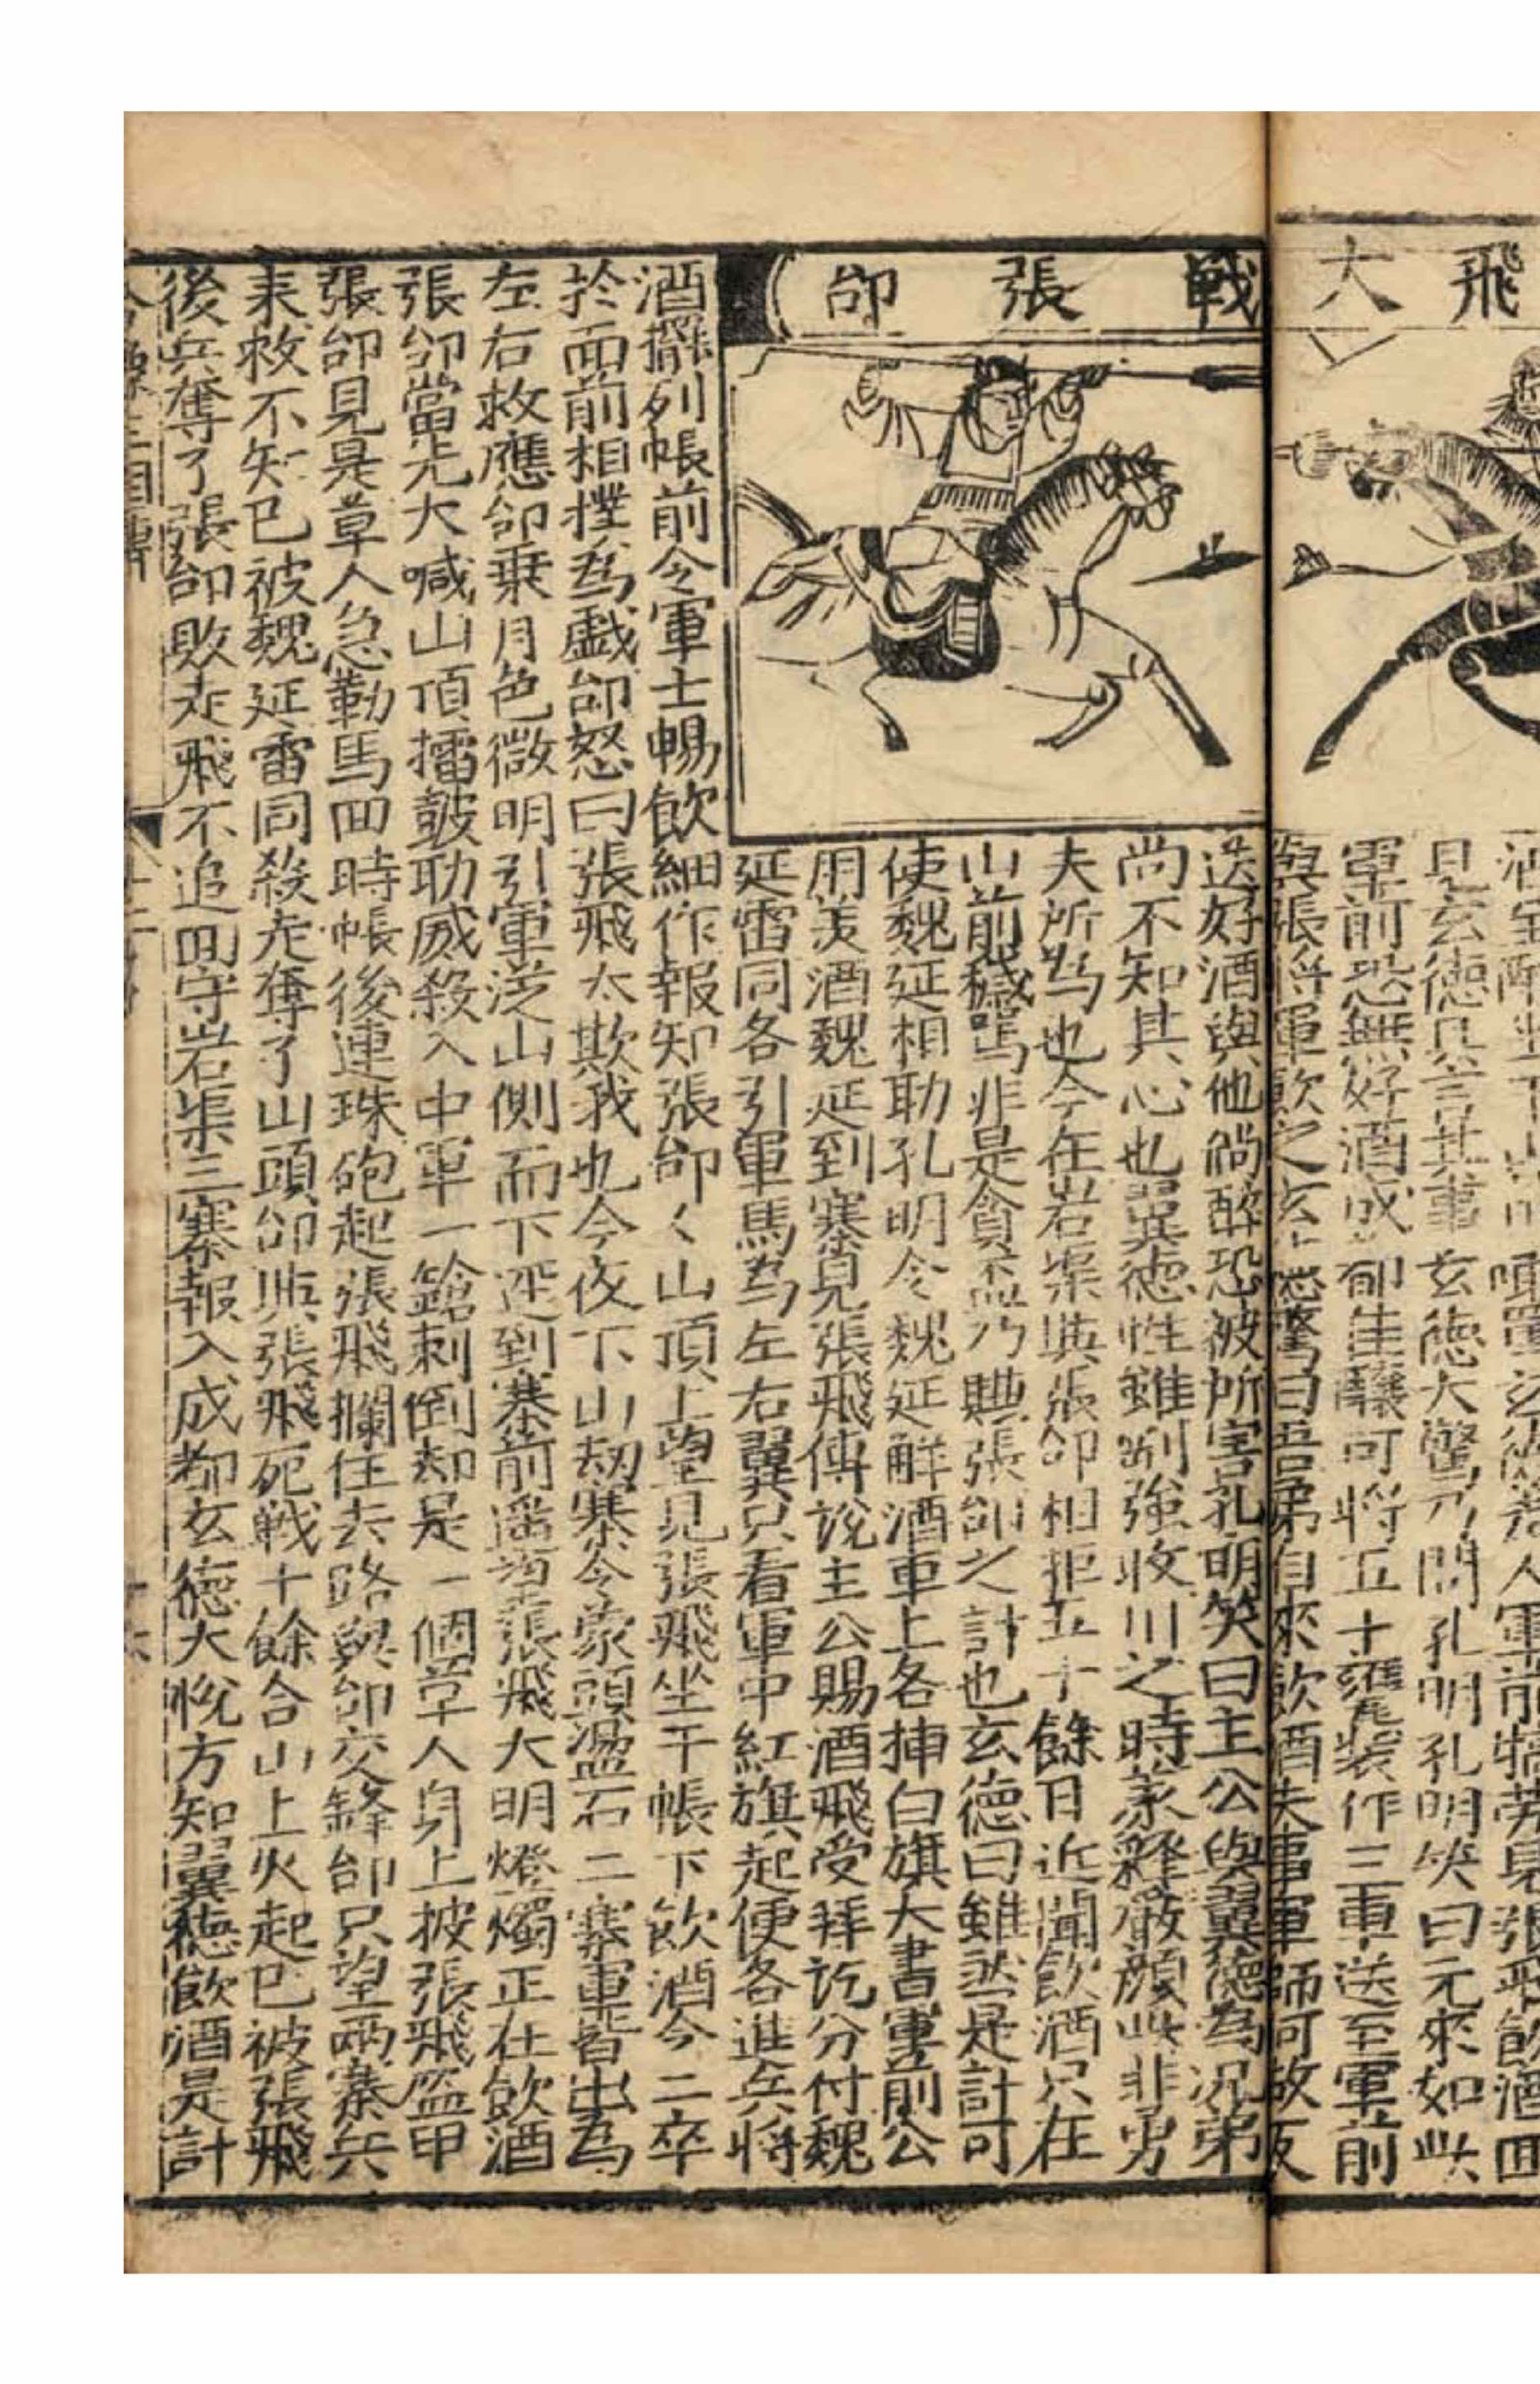 飛大
戰張郃
見玄德具言其事玄德大驚乃問孔明孔明笑曰元來如此
軍前恐無好酒成都佳釀可將五十甕裝作三車送至軍前
與張將軍飲之玄德驚曰吾弟自來飲酒失事軍師何故反
送好酒與他倘醉恐被所害孔明笑曰主公與翼德為兄弟
尚不知其心也翼德性雖剛強收川之時義釋嚴顏此非勇
夫所為也今在岩渠與張郃相拒五十餘日近聞飲酒只在
山前穢罵非是貪盃乃賺張郃之計也玄德曰雖然是計可
使魏延相助孔明令魏延解酒車上各挿白旗大書軍前公
用羙酒魏延到寨見張飛傳說主公賜酒飛受拜訖分付魏
延雷同各引軍馬為左右翼只看軍中紅旗起便各進兵將
酒擺列帳前令軍士暢飲細作報知張郃〻山頂上望見張飛坐于帳下飲酒令二卒
於面前相撲為戯郃怒曰張飛太欺我也今夜下山刼寨令蒙頭盪石二寨軍皆出為
左右救應郃乘月色微明引軍從山側而下逕到寨前遥望張飛大明燈燭正在飲酒
張郃當先大喊山頂擂鼓助威殺入中軍一鎗刺倒却是一個草人身上披張飛盔甲
張郃見是草人急勒馬囬時帳後連珠砲起張飛攔住去路與郃交鋒郃只望兩寨兵
来救不知已被魏延雷同殺走奪了山頭郃與張飛死戰十餘合山上火起已被張飛
後兵奪了張郃敗走飛不追囬守岩渠三寨報入成都玄德大悅方知翼德飲酒是計